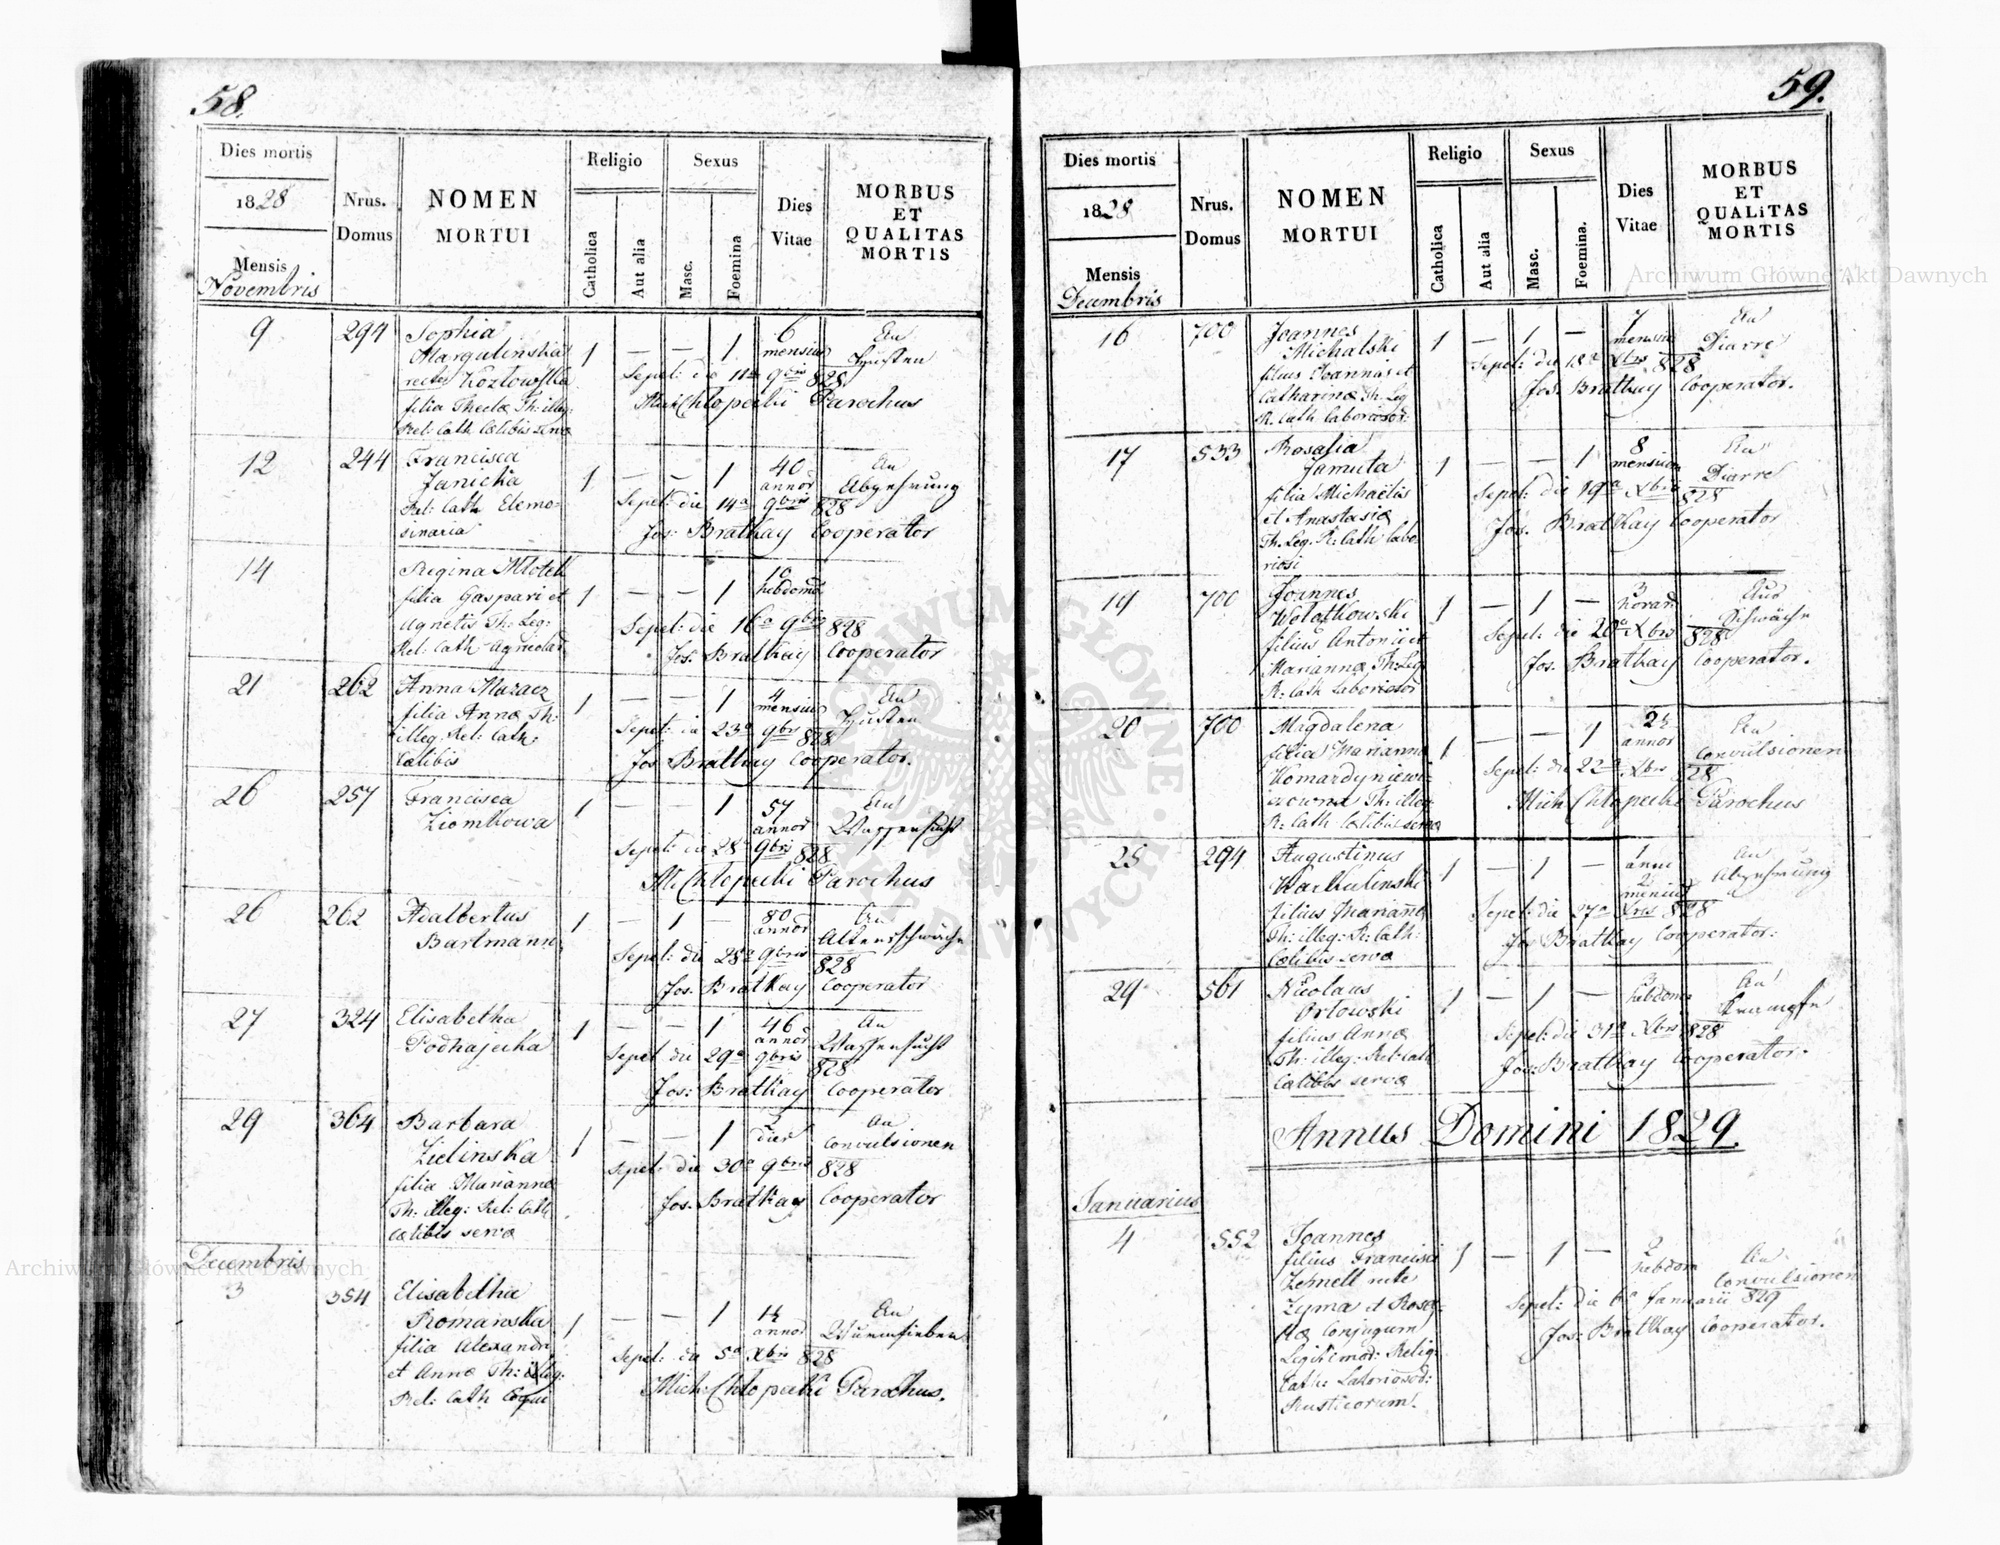 58.
Dies mortis
1828
Mensis
Novembris
Nrus.
Domus
NOMEN
MORTUI
Religio
Catholica
Aut alia
Sexus
Masc.
Foemina
Dies
Vitae
MORBUS
ET
QUALITAS
MORTIS
9 294 Sophia 6 An
Margulinska 1 — — 1 mensium Husten
recte Kozłowska Sepel: die 11a 9bris 828
filia Theclæ Th: illeg: Mich Chłopecki Parochus
Rel: Cath Cælibis servæ
12 244 Francisca 40 An
Janicka 1 — — 1 annor Abzehrung
Rel: Cath Elemo- Sepel: die 14a 9bris 828
sinaria Jos: Bratkay Cooperator
14 Regina Młotek 10
filia Gaspari et 1 — — 1 hebdomad
Agnetis Th: Leg: Sepel: die 16a 9bris 828
Rel: Cath Agricolar Jos: Bratkay Cooperator
21 262 Anna Mazacz 4 An
filia Annæ Th: 1 — — 1 mensium Husten
illeg: Rel: Cath: Sepel: die 23a 9bris 828
Cælibis Jos Bratkay Cooperator.
26 257 Francisca 57 An
Ziombowa 1 — — 1 annor Wassersucht
Sepel: die 28a 9bris 828
M. Chłopecki Parochus
26 262 Adalbertus 80 An
Bartmann 1 — 1 — annor Altersschwäche
Sepel: die 28a 9bris 828
Jos. Bratkay Cooperator
27 324 Elisabetha 46 An
Podhajecka 1 — — 1 annor Wassersucht
Sepel die 29a 9bris 828
Jos: Bratkay Cooperator
29 364 Barbara 2 An
Zielinska 1 — — 1 dier Convulsionen
filia Mariannæ Sepel: die 30a 9bris 828
Th: illeg: Rel: Cath Jos. Bratkay Cooperator
Cælibis servæ
Decembris
3 354 Elisabetha An
Romanska 1 — — 1 annor
filia Alexandri Sepel: die 5a Xbris 828
et Annæ Th: illeg: Mich: Chłopecki Parochus.
Rel: Cath
59.
Dies mortis
1828
Mensis
Decembris
Nrus.
Domus
NOMEN
MORTUI
Religio
Catholica
Aut alia
Sexus
Masc.
Foemina.
Dies
Vitae
MORBUS
ET
QUALiTAS
MORTIS
16 700 Joannes 7 An
Michalski 1 — 1 — mensium Diarre
filius Joannis et Sepel: die 18a Xbris 828
Catharinæ Th: Leg Jos. Bratkay Cooperator.
R. Cath Laboriosor.
17 533 Rosalia 8 An
Jamuta 1 — — 1 mensium Diarre
filia Michaëlis Sepel: die 19a Xbris 828
et Anastasiæ Jos. Bratkay Cooperator
Th. Leg. R: Cath Labo-
riosi
19 700 Joannes 3 Aus
Wołotkowski 1 — 1 — horar Schwäche
filius Antonii et Sepel: die 20a Xbris 828
Mariannæ Th: Leg Jos. Bratkay Cooperator.
R: Cath Laboriosor
20 700 Magdalena An
filia Mariannæ 1 — — 1 annor Convulsionen
Komardyniewi- Sepel: die 22a Xbris 828
czowna Th: illeg Mich Chłopecki Parochus
R: Cath Cælibis servæ
25 294 Augustinus 1 An
Warkulinski 1 — 1 — anni Abzehrung
filius Mariannæ 2 mensium Sepel: die 27a Xbris 828
Th: illeg: R: Cath: Jos Bratkay Cooperator:
Cælibis servæ
29 561 Nicolaus 3 An
Orłowski 1 — 1 — hebdom Krampfe
filius Annæ Sepel: die 31a Xbris 828
Th: illeg: Rel: Cath Jos: Bratkay Cooperator.
Cælibis servæ
Annus Domini 1829.
Januarius
4 552 Joannes 2 An
filius Francisci 1 — 1 — hebdom Convulsionen
Zemell recte Sepel: die 6a Januarii 829
Zyma et Rosa- Jos. Bratkay Cooperator.
liæ Conjugum
Legitimor: Relig:
Cath: Laboriosor:
Rusticorum.
Archiwum Główne Akt Dawnych
Archiwum Główne Akt Dawnych
ARCHIWUM GŁÓWNE AKT DAWNYCH